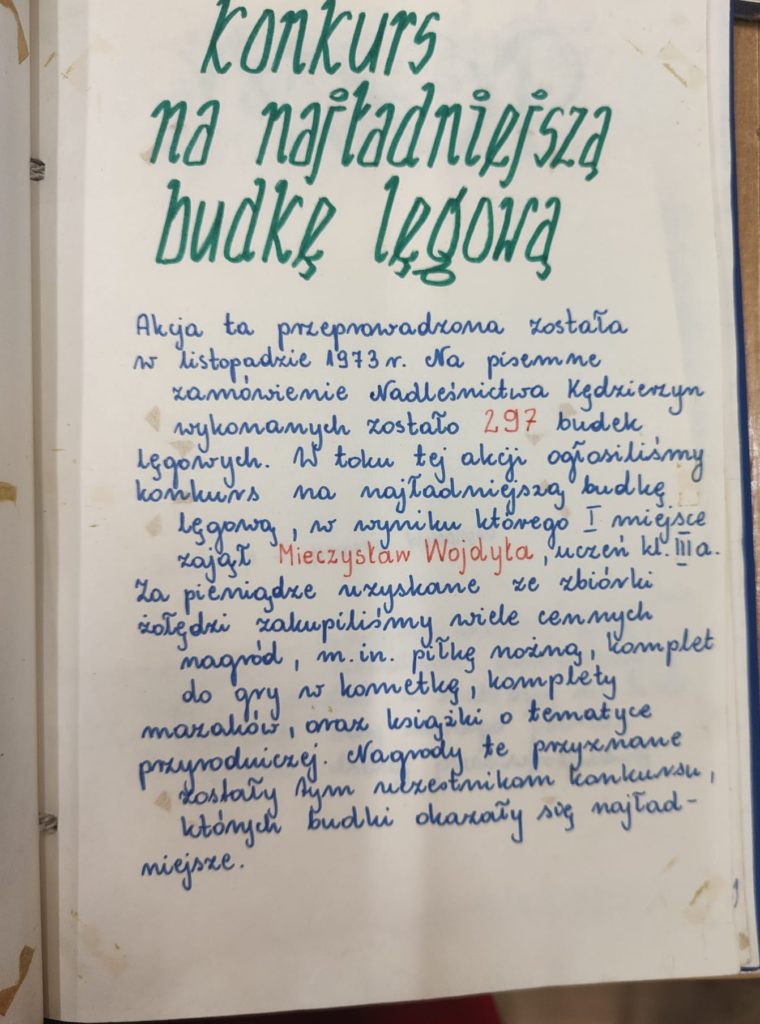 konkurs
na najładniejszą
budkę lęgową
Akcja ta przeprowadzona została
w listopadzie 1973 r. Na pisemne
zamówienie Nadleśnictwa Kędzierzyn
wykonanych zostało 297 budek
lęgowych. W toku tej akcji ogłosiliśmy
konkurs na najładniejszą budkę
lęgową, w wyniku którego I miejsce
zajął Mieczysław Wojdyła, uczeń kl. III a.
Za pieniądze uzyskane ze zbiórki
żołędzi zakupiliśmy wiele cennych
nagród, m.in. piłkę nożną, komplet
do gry w kometkę, komplety
mazaków, oraz książki o tematyce
przyrodniczej. Nagrody te przyznane
zostały tym uczestnikom konkursu,
których budki okazały się najład-
niejsze.